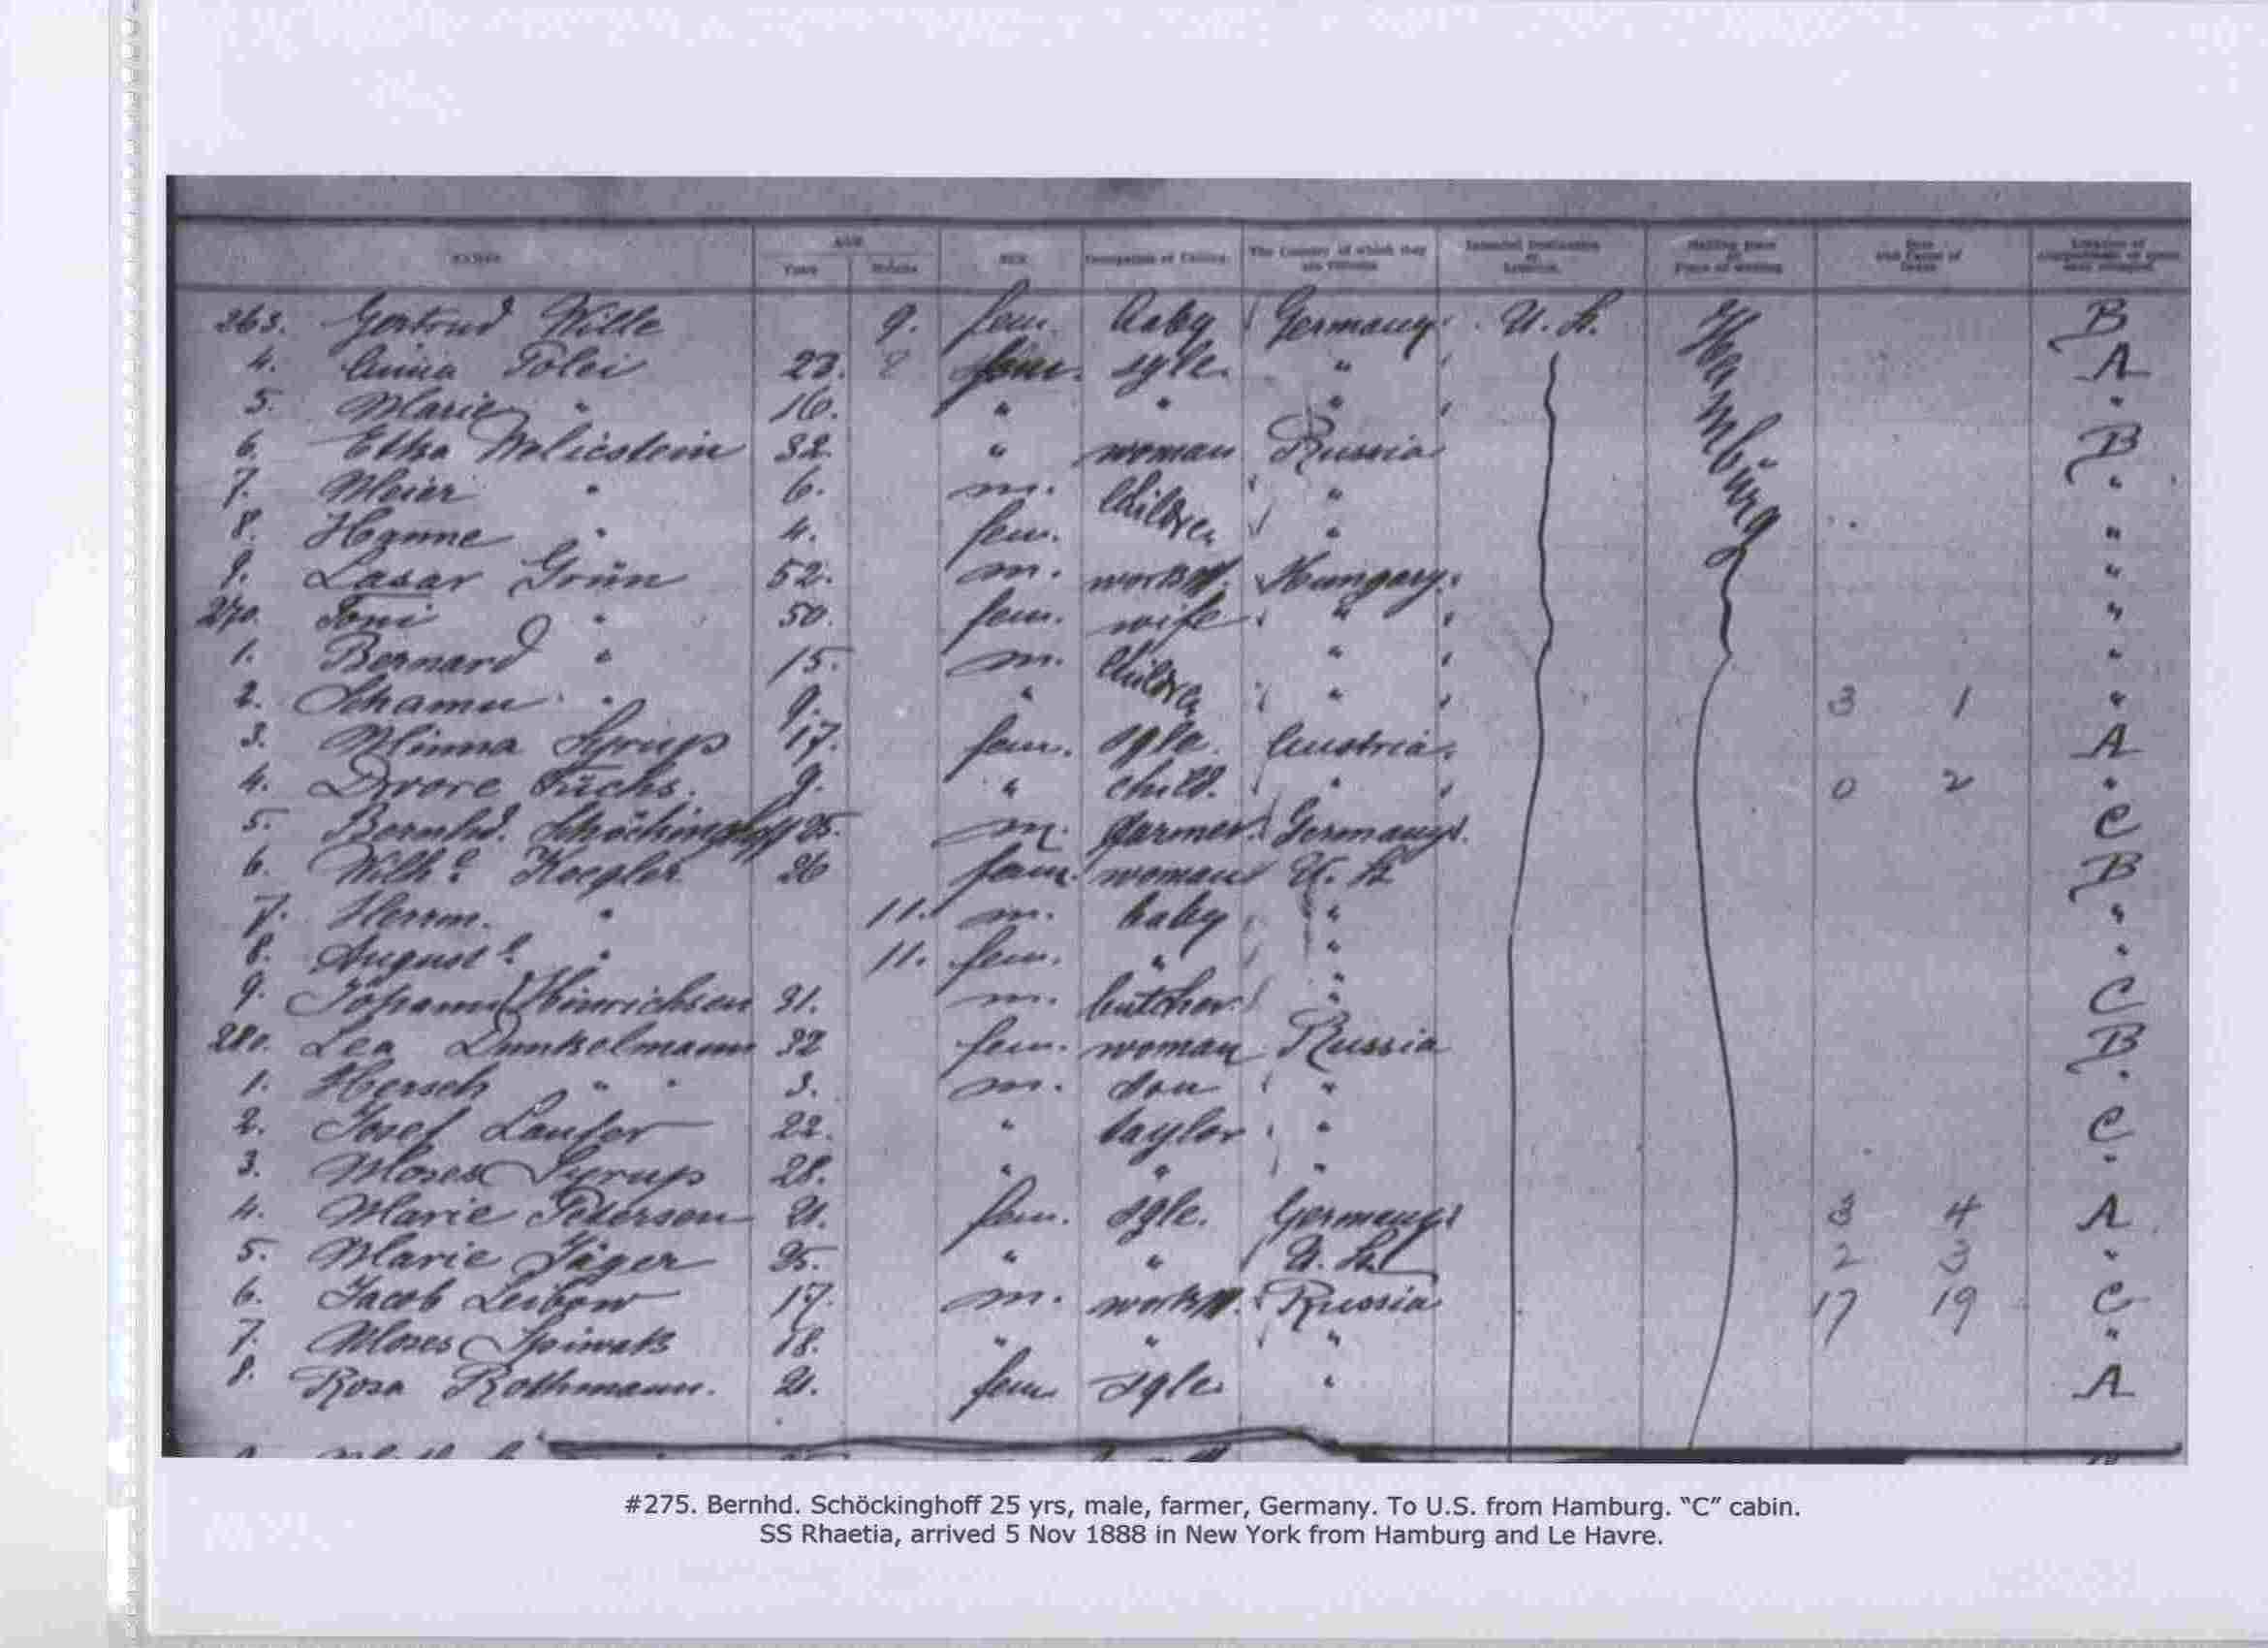 NAMES AGE Years Months SEX Occupation or Calling. The Country of which they are Citizens Intended Destination or Location.
263. Gertrud Wille 9. fem. baby Germany U. S. Hamburg B
4. Anna Polei 22. fem. sgle. " A
5. Marie " 16. " " " "
6. Etka Wolicstein 32. " woman Russia B
7. Meier " 6. m. Children " "
8. Hanne " 4. fem. " "
9. Lasar Grün 52. m. workm. Hungary. "
270. Toni " 50. fem. wife " "
1. Bernard " 15. m. Children " "
2. Schamu " 9. " " 3 1 "
3. Minna Syrup 17. fem. sgle. Austria. A
4. Dwore Fuchs. 9. " child. " 0 2 "
5. Bernhd. Schöckinghoff 25. m. farmer. Germany. C
6. Wilhe. Koegler 26 fem. woman U. S. B
7. Herrm. " 11. m. baby " "
8. Auguste. " 11. fem. " " "
9. Johann Hinrichsen 31. m. butcher. " C
280. Lea Dunkelmann 32 fem. woman Russia B
1. Hersch " " 3. m. son " "
2. Josef Laufer 22. " taylor " C
3. Moses Syrup 28. " " " "
4. Marie Petersen 21. fem. sgle. Germany 3 4 A
5. Marie Jäger 25. " " U. S. 2 3 "
6. Jacob Leibow 17. m. workm. Russia 17 19 C
7. Moses Spiwak 18. " " " "
8. Rosa Rothmann. 21. fem. sgle. " A
#275. Bernhd. Schöckinghoff 25 yrs, male, farmer, Germany. To U.S. from Hamburg. "C" cabin.
SS Rhaetia, arrived 5 Nov 1888 in New York from Hamburg and Le Havre.